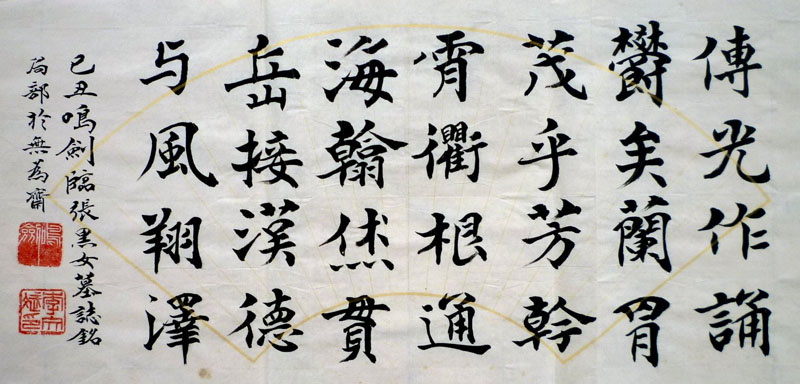 傳光作誦
欝矣蘭胄
茂乎芳幹
霄衢根通
海翰烋貫
岳接漢德
与風翔澤
己丑鳴劍臨張黑女墓誌銘
局部於無為齋
鳴劍